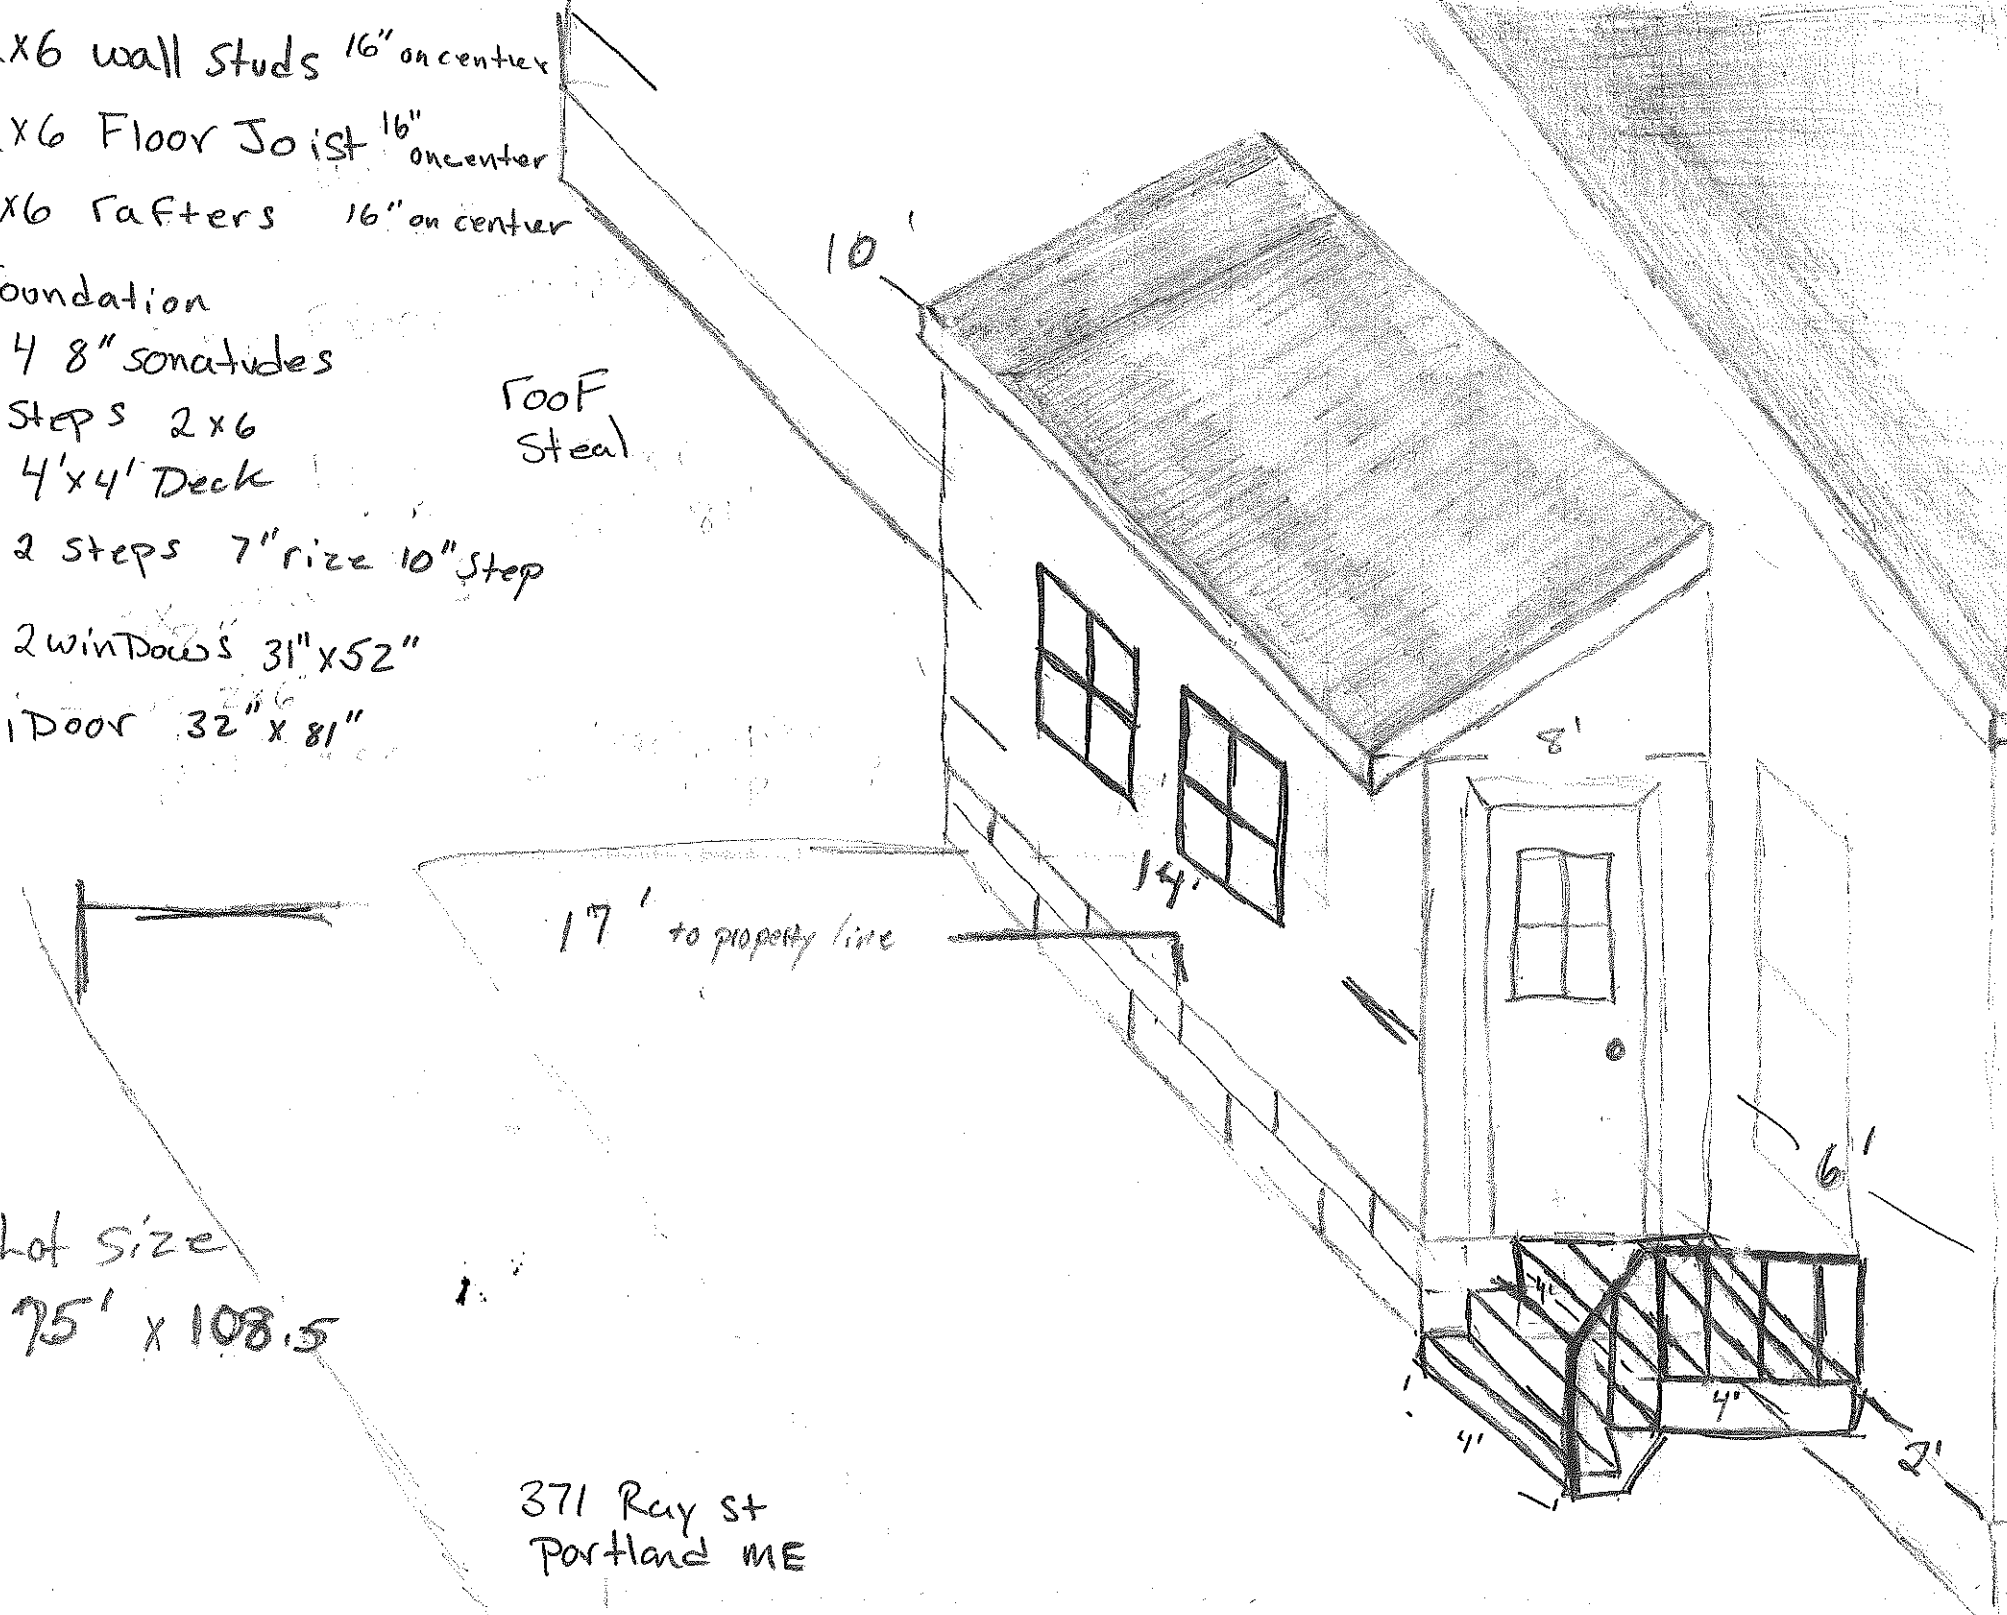 x6 wall studs 16" on centier
x6 Floor Joist 16" oncenter
x6 rafters 16" on centier
oundation
4 8" sonatudes
Steps 2x6
4'x4' Deck
2 steps 7" rize 10" step
2 winDows 31" x52"
1 Door 32" x 81"
rooF
Steal
10'
8'
14'
17' to property line
6'
4'
4'
4'
2'
Lot size
75' x 108.5
371 Ray st
Portland ME